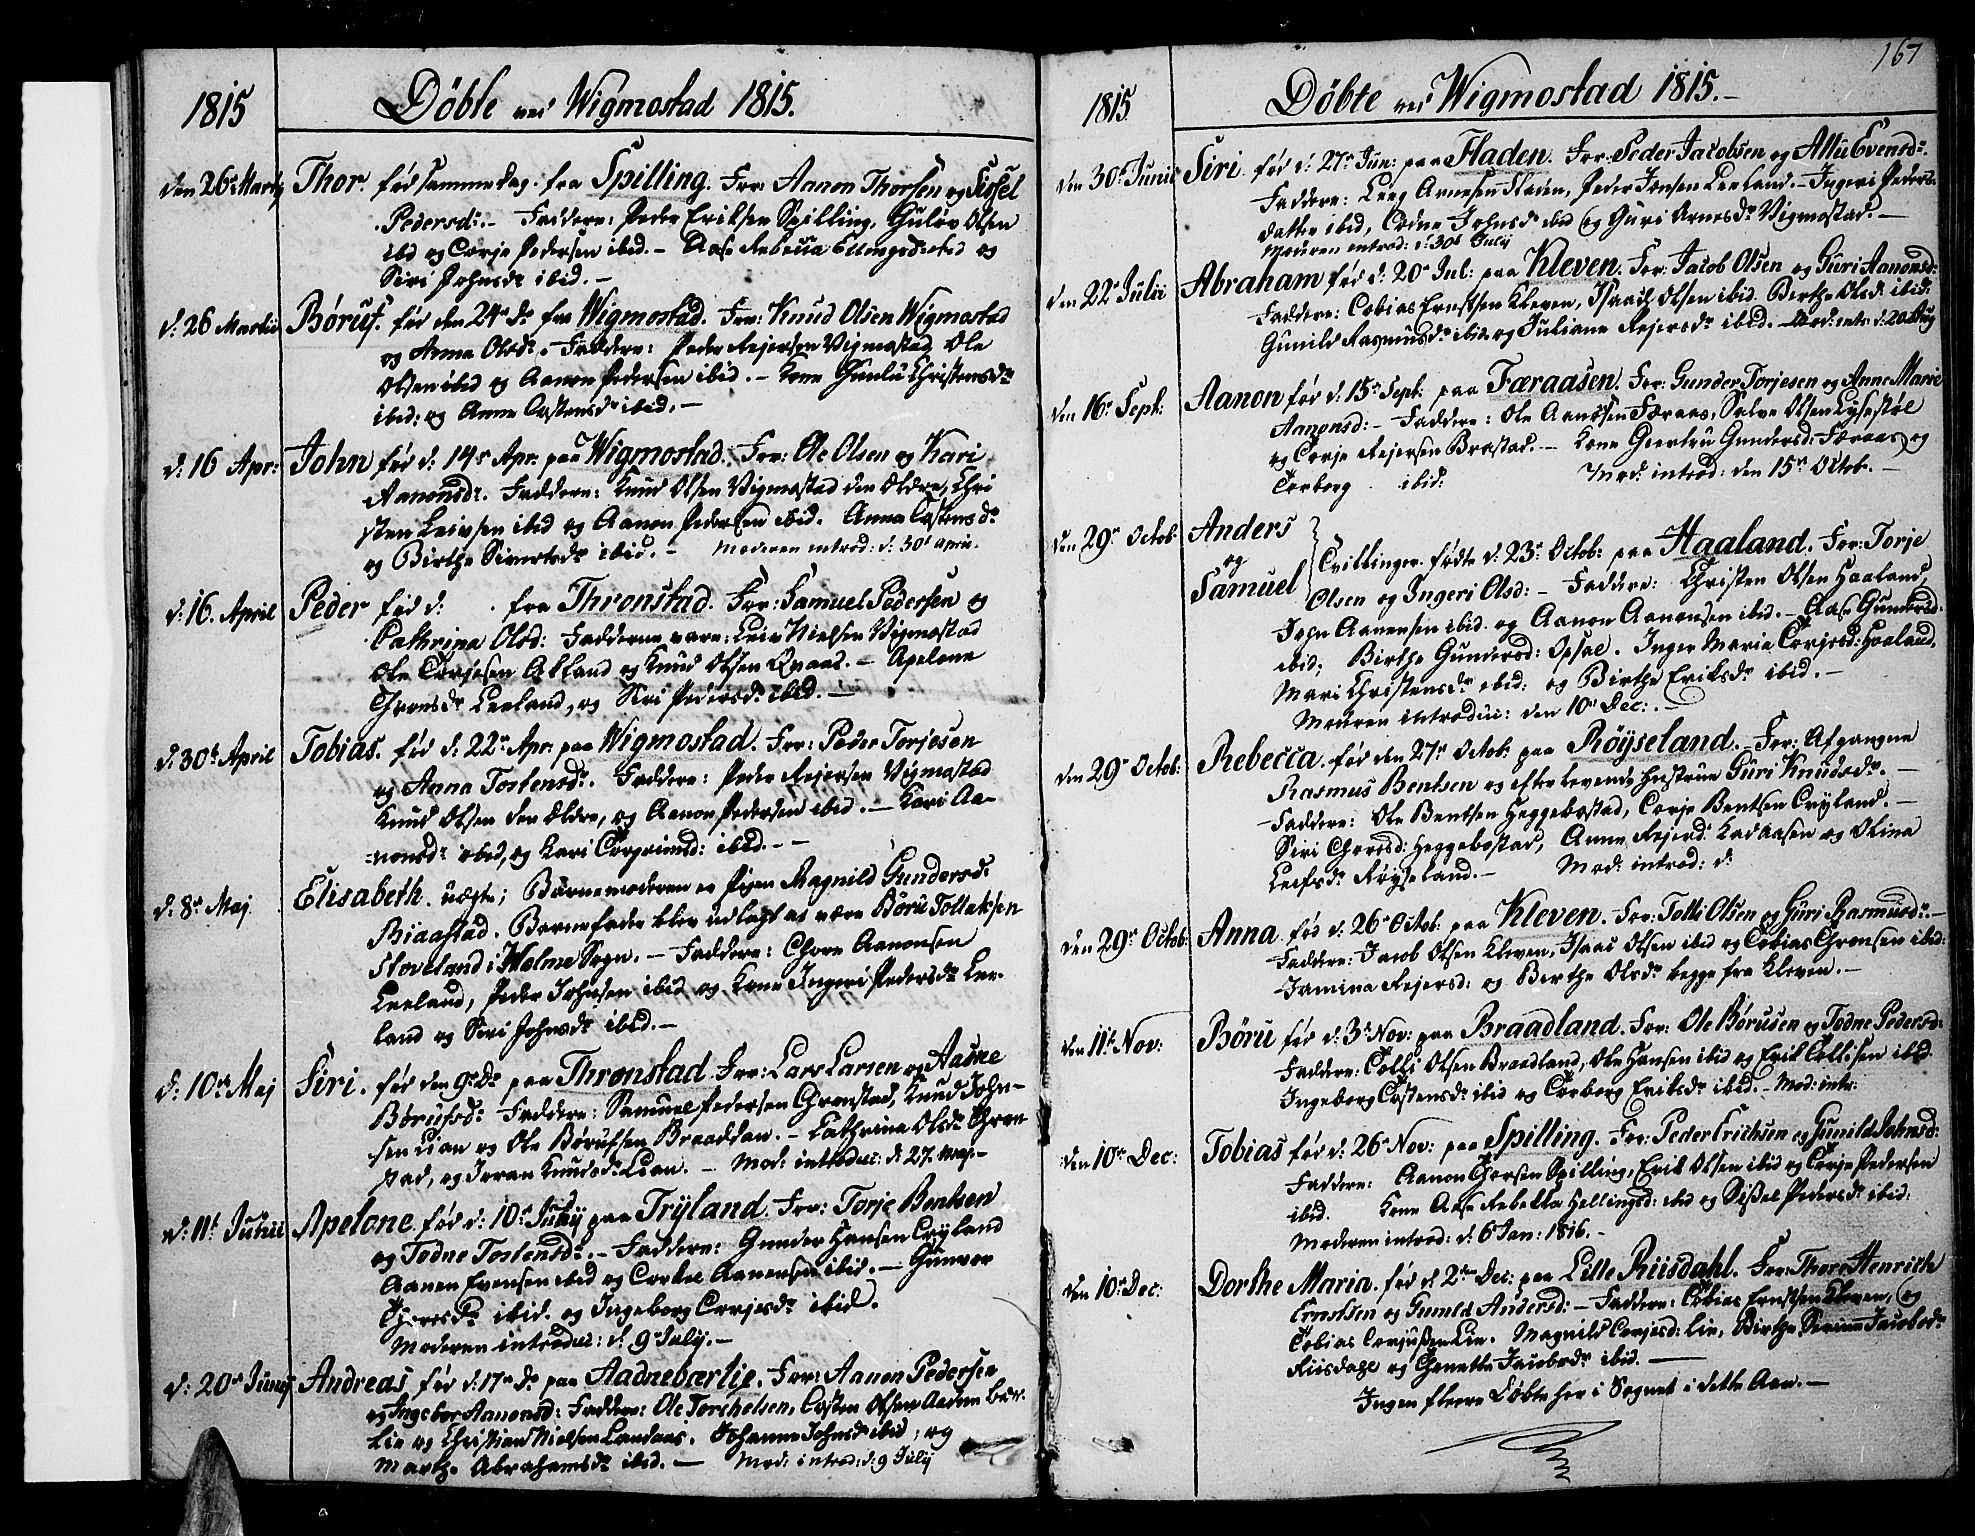 1815
Døbte ved Wigmostad 1815.
den 26de Martij Thor. fød samme dag. fra Spilling. For: Aanon Thorsen og Sissel
Pedersdr. – Faddere: Peder Eriksen Spilling, Guluv Olsen
ibd og Torje Pedersen ibid. – Aase Rebecca Ellingsd: ibid og
Siri Johnsdr ibid. –
d: 26 Martii Børuf. fød den 24de Ds fra Wigmostad. For: Knud Olsen Wigmostad
og Anna Olsdr. Faddere: Peder Rejersen Vigmostad, Ole
Olsen ibid og Aanon Pedersen ibid. – Kone Gunlu Christensdr
ibid: og Anne Tostensdr ibid. –
d: 16 Apr: John fød d: 14de Apr: paa Wigmostad. For: Ole Olsen og Kari
Aanonsdr. Faddere: Knud Olsen Vigmostad den Eldre, Chri
sten Leivsen ibid og Aanon Pedersen ibid. Anna Tostensdr
og Birthe Sivertsdr ibid. – Moderen introd: d: 30t April.
d: 16. April Peder fød d: . fra Thronstad. For: Samuel Pedersen og
Cathrina Olsd: Fadderne vare: Leiv Nielsen Vigmostad
Ole Torjesen Akland og Knud Olsen Qvaas. – Apelone
Thronsdr Leeland, og Siri Pedersdr ibid. –
d: 30t April Tobias. fød d: 22de Apr: paa Wigmostad. For: Peder Torjesen
og Anna Tostensdr. Faddere: Peder Rejersen Vigmostad
Knud Olsen den Eldre, og Aanon Pedersen ibid. – Kari Aa-
nonsdr ibid, og Kari Torgrimsd: ibid. –
d: 8de Maj Elisabeth. uægte; Barnemoderen er Pigen Magnild Gundersdr
Biaastad. Barnefader blev udlagt at være Børu Tollaksen
Stoveland i Holme Sogn. – Faddere: Thore Aanonsen
Leeland, Peder Johnsen ibid og Kone Ingeri Pedersdr Lee-
land og Siri Johnsdr ibid. –
d: 10de Maj Siri. fød den 9de Ds paa Thronstad. For: Lars Larsen og Aasne
Børufsdr Faddere: Samuel Pedersen Thronstad, Knud John-
sen Lian og Ole Børufsen Braaddan. – Cathrina Olsdr Thron
stad, og Joran Knudsdr Lian. – Mod: introduc: d: 27. Maj –
d: 11t Junii Apelone. fød d: 10de July paa Tryland. For: Torje Bentsen
og Todne Tostensdr. – Faddere: Gunder Hansen Tryland
Aanen Evensen ibid og Torkel Aanensen ibid. – Gunvor
Thoresdr ibid. og Ingeborg Torjesdr ibid.
Moderen introduc: d: 9de July. –
d: 20de Junij Andreas fød d: 17de Ds paa Aadnebærlie. For: Aanon Pedersen
og Ingebor Aanonsd: Faddere: Ole Torchelsen, Tosten Olsen Aadnebær
lie og Christian Nielsen Landaas. Johanne Johnsdr ibid, og
Marthe Abrahamsdr ibid. – Mod: introd: d: 9 July
167
1815.
Døbte ved Wigmostad 1815. –
den 30t Junii Siri fød d: 27de Jun: paa Fladen. For: Peder Jacobsen og Allu Evensdr.
Faddere: Leeg Arnesen Fladen, Peder Jonsen Leeland. – Ingeri Peders-
datter ibid, Todne Johnsdr ibid og Guri Arnesdr Vigmostad. –
Moderen introd: d: 30t July
den 22de Julii Abraham fød d: 20de Jul: paa Kleven. For: Jacob Olsen og Guri Aanonsd:
Faddere: Tobias Ernstsen Kleven, Isaach Olsen ibid. Berthe Olsdr ibid:
Gunild Rasmusdr ibid og Juliane Rejersdr ibid. – Mod: intr: d: 20 Aug
den 16de Sept: Aanon fød d: 15de Sept: paa Færaasen. For: Gunder Torjesen og Anne Marie
Aanonsd: – Faddere: Ole Aanssen Færaas, Salve Olsen Lysestøl
og Torje Rejersen Brastad. – Kone Geertru Gundersd: Færaas og
Torborg ibid: Mod: introd: den 15de Octob. –
den 29de Octob: Anders
og
Samuel
Tvillinger. fødte d: 23de Octob: paa Haaland. For: Torje
Olsen og Ingeri Olsd: – Faddere: Christen Olsen Haaland,
John Aanensen ibid. og Aanon Aanensen ibid. – Aase Gundersd:
ibid; Birthe Gundersd: Opsal. Inger Maria Torjesd: Haaland.
Mari Christensdr ibid: og Birthe Eriksdr ibid. –
Moderen introduc: den 10de Dec: –
den 29de Octob: Rebecca. fød den 27de Octob: paa Røyseland. For: Afgangne
Rasmus Bentsen og efterlevende Hustrue Guri Knudsdr. –
Faddere: Ole Bentsen Heggebostad, Torje Bentsen Tryland. –
Siri Thoresd: Heggebostad, Anne Rejersd: Kadaasen og Olina
Leifsdr Røyseland. – Mod: introd: d:
den 29de Octob: Anna fød d: 26de Octob: paa Kleven. For: Tolli Olsen og Guri Rasmusdr. –
Faddere: Jacob Olsen Kleven, Isaac Olsen ibid og Tobias Thronsen ibid:
Jamina Rejersd: og Berthe Olsdr begge fra Kleven. –
den 11t Nov: Børu fød d: 3de Nov: paa Braadland. For: Ole Børusen og Todne Pedersd:
Faddere: Tolli Olsen Braadland, Ole Hansen ibid og Erik Tollisen ibid.
Ingeborg Tostensdr ibid og Torborg Eriksdr ibid. – Mod: intr:
den 10de Dec: Tobias fød d: 26de Nov: paa Spilling. For: Peder Erichsen og Gunild Johnsd:
Faddere: Aanon Thorsen Spilling, Erik Olsen ibid og Torje Pedersen
ibid. Kone Aase Rebekka Hellingsd: ibid og Sissel Pedersdr ibid:
Moderen introd: d: 6 Jan: 1816. –
den 10de Dec: Dorthe Maria. fød d: 2den Dec: paa Lille Riisdahl. For: Thore Henrich
Ernstsen og Gunild Andersd: – Faddere: Tobias Ernstsen Kleven, og
Tobias Torjussen Lie. Magnild Torjesd: Lie, Birthe Serine Jacobsdr
Riisdahl og Thonette Jacobsdr ibid. –
Ingen fleere Døbte her i Sognet i dette Aar. –